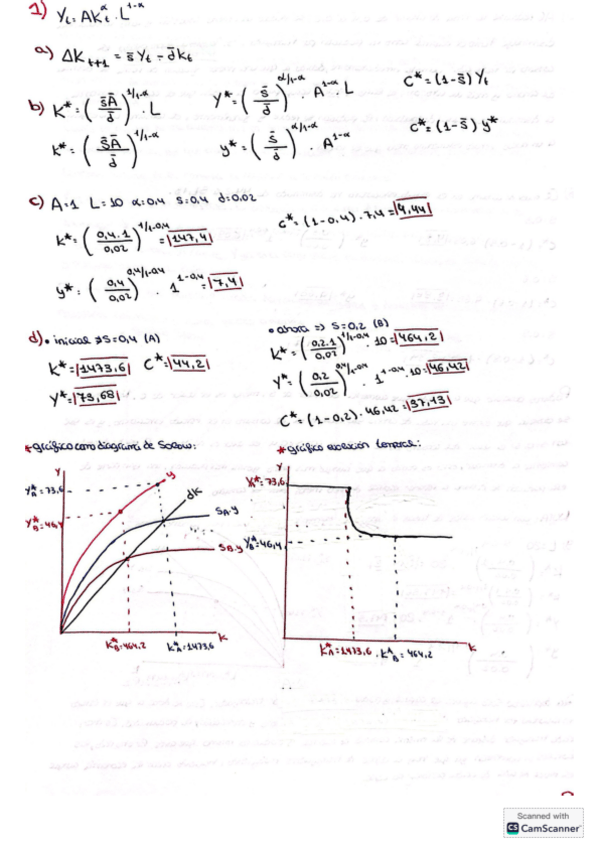 1) Yt = AKt^α · L^1-α
a) ΔKt+1 = s̄ Yt - d̄Kt
b) K* = (s̄Ā/d̄)^1/1-α · L   Y* = (s̄/d̄)^α/1-α · A^1-α · L   C* = (1-s̄) Yt
k* = (s̄Ā/d̄)^1/1-α   y* = (s̄/d̄)^α/1-α · A^1-α   c* = (1-s̄) y*
c) A=1 L=10 α=0,4 s=0,4 d=0,02
k* = (0,4·1/0,02)^1/1-0,4 = 147,4   c* = (1-0,4)·7,4 = 4,44
y* = (0,4/0,02)^0,4/1-0,4 · 1^1-0,4 = 7,4
d) • inicial ⇒ s=0,4 (A)
K* = 1473,6   C* = 44,2
Y* = 73,68
• ahora => s=0,2 (B)
K* = (0,2·1/0,02)^1/1-0,4 · 10 = 464,2
Y* = (0,2/0,02)^0,4/1-0,4 · 1^1-0,4 · 10 = 46,42
C* = (1-0,2)·46,42 = 37,13
* gráfico como diagrama de Solow:
Y
y
Y*A = 73,6
dK
SA·y
Y*B = 46,4
SB·y
K
K*B = 464,2   K*A = 1473,6
* gráfico evolución temporal:
Y
Y*A = 73,6
Y*B = 46,4
K
K*A = 1473,6 · K*B = 464,2
Scanned with
CS CamScanner